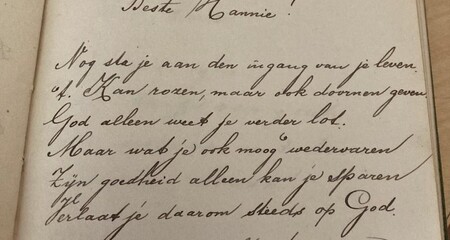 Beste Hannie!
Nog sta je aan den ingang van je leven.
't Kan rozen, maar ook doornen geven.
God alleen weet je verder lot.
Maar wat je ook moog' wedervaren
Zijn goedheid alleen kan je sparen
Verlaat je daarom steeds op God.